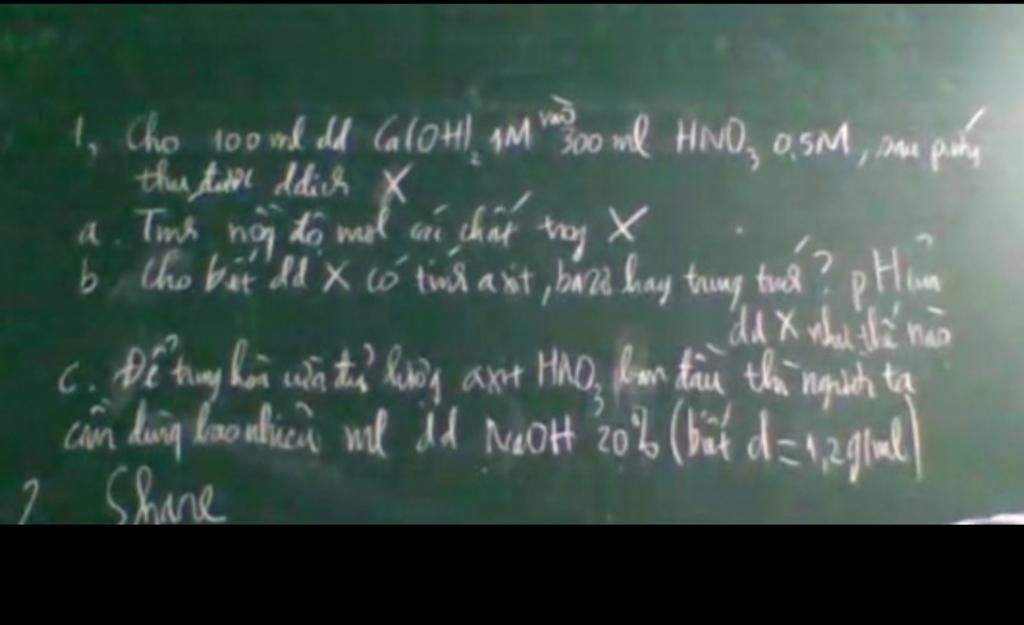 1, Cho 100 ml dd Ca(OH)₂ 1M vào 300 ml HNO₃ 0,5M, sau pứng
thu được ddịch X
a. Tính nồng độ mol các chất trong X
b Cho biết dd X có tính axit, bazơ hay trung tính? pH của
dd X như thế nào
c. Để trung hòa vừa đủ lượng axit HNO₃ ban đầu thì người ta
cần dùng bao nhiêu ml dd NaOH 20% (biết d = 1,2g/ml)
Share